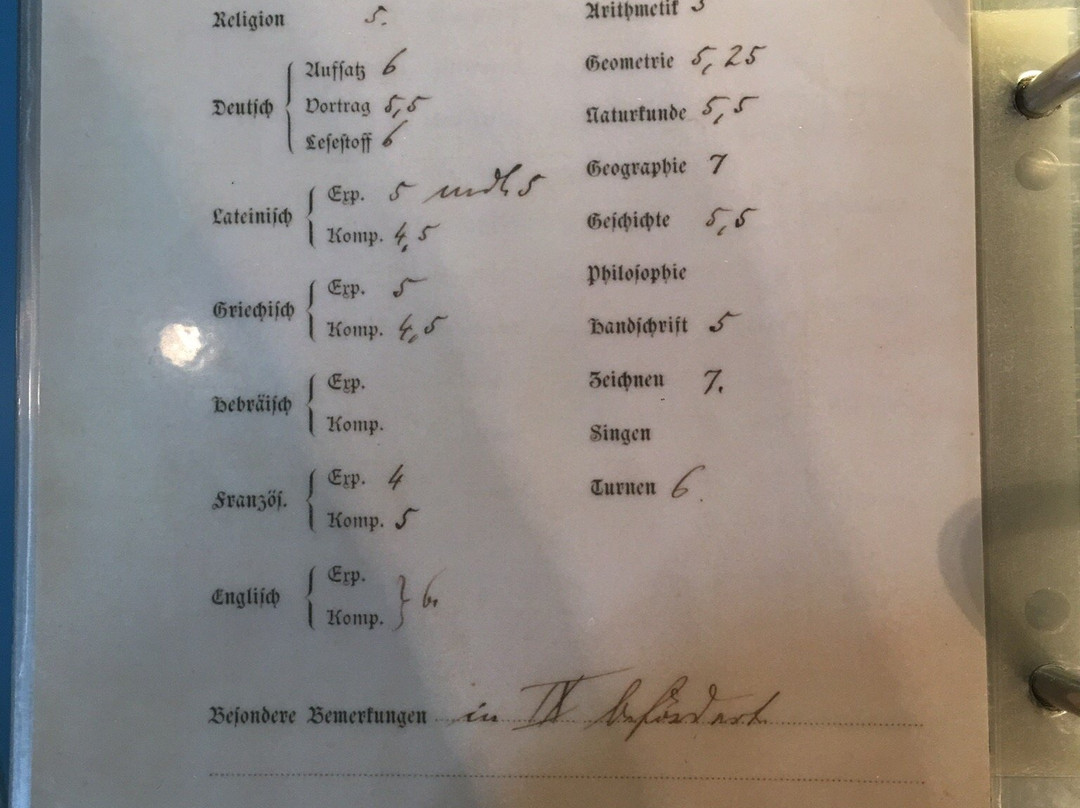 Religion 5.
Deutsch
Aufsatz 6
Vortrag 5,5
Lesestoff 6
Lateinisch
Exp. 5 mdl. 5
Komp. 4,5
Griechisch
Exp. 5
Komp. 4,5
Hebräisch
Exp.
Komp.
Französ.
Exp. 4
Komp. 5
Englisch
Exp.
Komp.
6.
Arithmetik
Geometrie 5,25
Naturkunde 5,5
Geographie 7
Geschichte 5,5
Philosophie
Handschrift 5
Zeichnen 7.
Singen
Turnen 6.
Besondere Bemerkungen in IX befördert